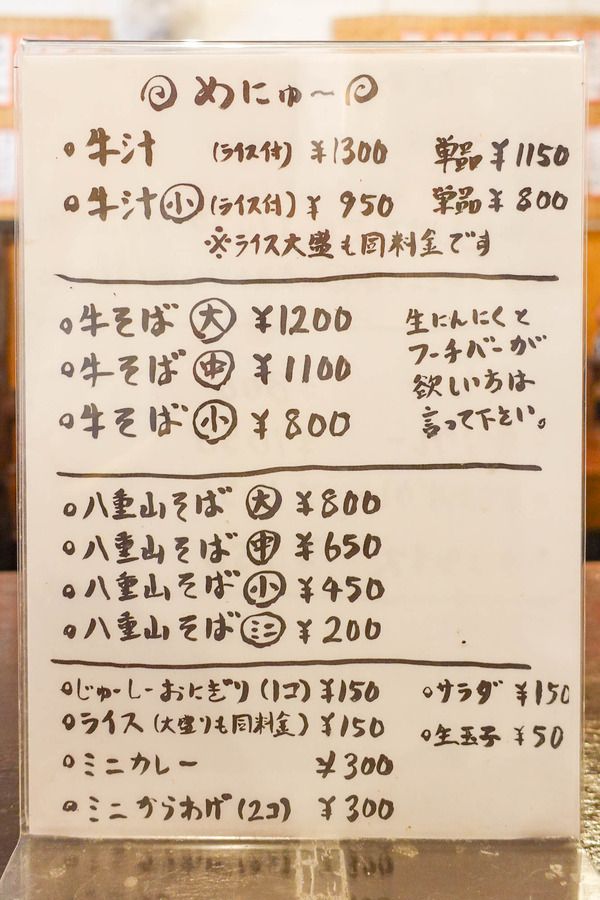 めにゅ〜
牛汁 (ライス付) ¥1300 単品 ¥1150
牛汁 小 (ライス付) ¥950 単品 ¥800
※ライス大盛も同料金です
牛そば 大 ¥1200
牛そば 中 ¥1100
牛そば 小 ¥800
生にんにくと
フーチバーが
欲しい方は
言って下さい。
八重山そば 大 ¥800
八重山そば 中 ¥650
八重山そば 小 ¥450
八重山そば ミニ ¥200
じゅーしーおにぎり(1コ) ¥150
ライス(大盛りも同料金) ¥150
ミニカレー ¥300
ミニからあげ(2コ) ¥300
サラダ ¥150
生玉子 ¥50